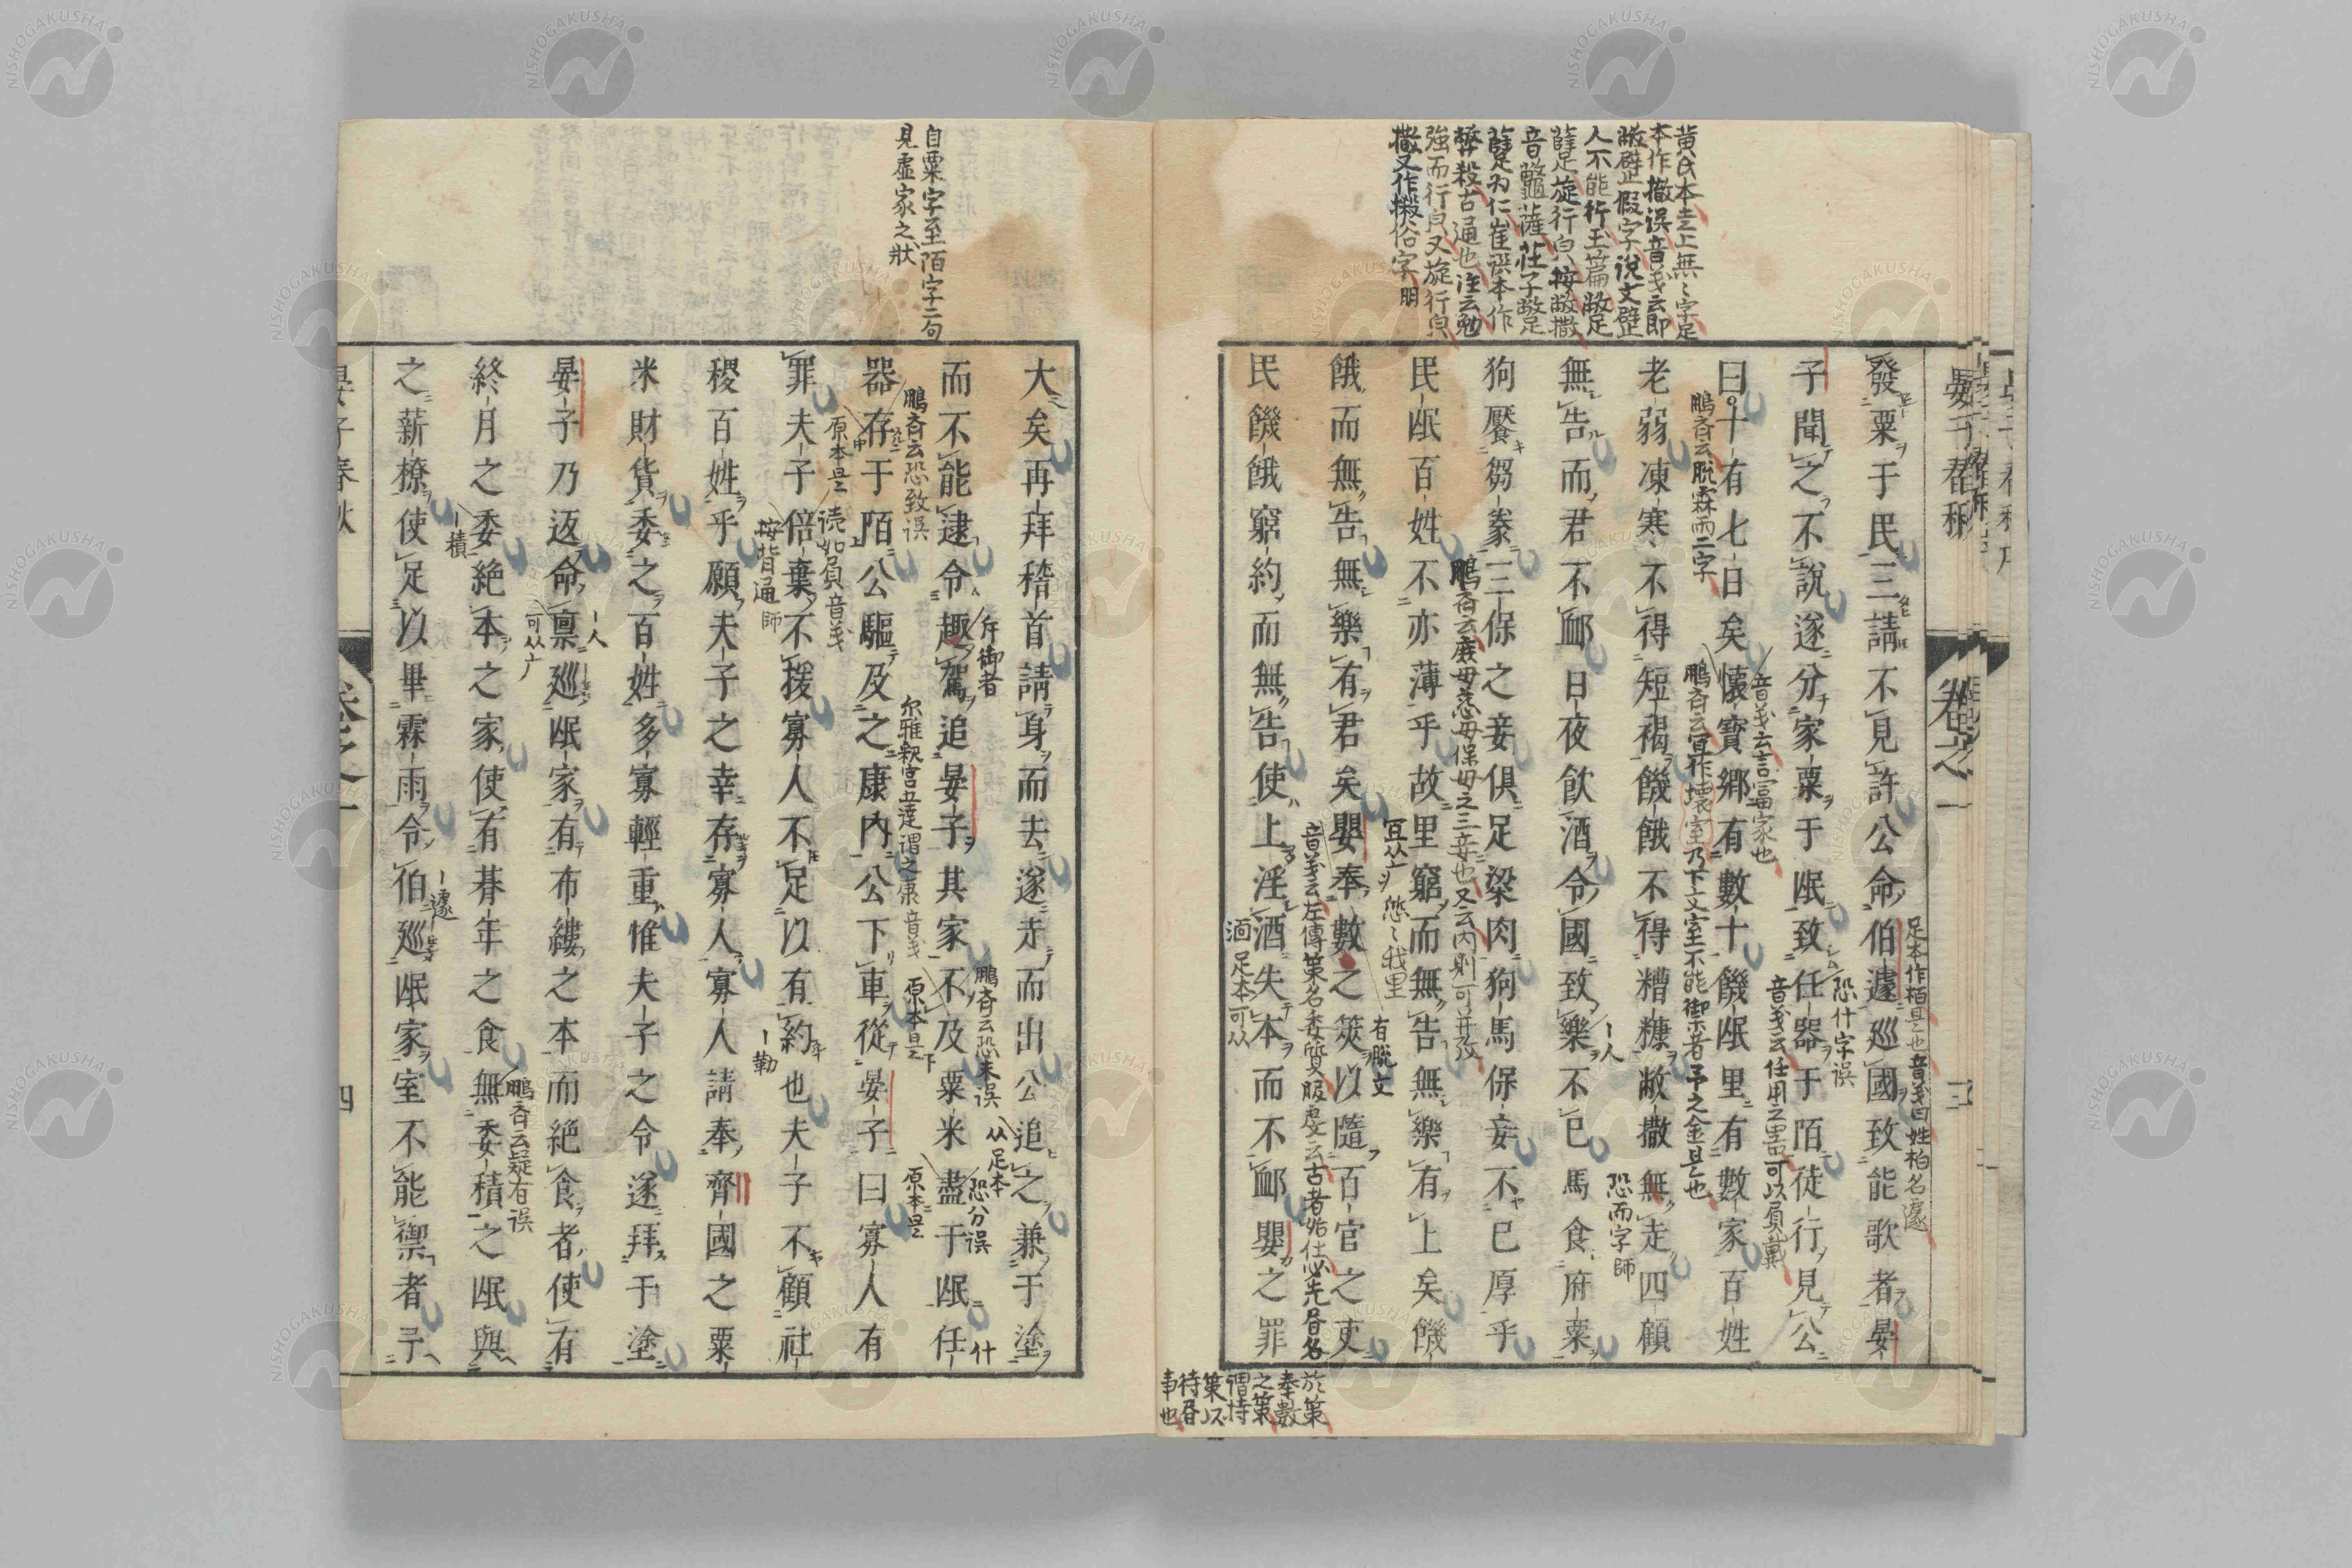 晏子春秋
卷之一
三
發粟于民三請不見許公命伯遽巡國致能歌者晏
子聞之不說遂分家粟于氓致任器于陌徒行見公
曰十有七日矣懷寶鄉有數十饑氓里有數家百姓
老弱凍寒不得短褐饑餓不得糟糠敝撒無走四顧
無告而君不卹日夜飲酒令國致樂不已馬食府粟
狗饜芻豢三保之妾俱足梁肉狗馬保妾不已厚乎
民氓百姓不亦薄乎故里窮而無告無樂有上矣饑
餓而無告無樂有君矣嬰奉數之筴以隨百官之吏
民饑餓窮約而無告使上淫酒失本而不卹嬰之罪
黃氏本走上無〻字足
本作撤誤音義云即
敝躃假字說文躄
人不能行玉篇敝足
躠足旋行皃按敝撒
音蹩薩莊子敝足
躠為仁崔譔本作
弊殺古通也注云勉
強而行皃又旋行皃
撒又作摋俗字 朋
足本作栢是也音義曰姓栢名遽
恐什字誤
音義云任用之器可以負戴
音義云言富家也
鵬斎云脫霖雨二字
鵬斎云宜作壞室乃下文室不能御者予之金是也
恐而字師
丨人
鵬斎云廣母慈母保母之三妾也又云内則可并攷
宜从广愆〻我里
有脫文
音義云左傳策名委質服虔云古者始仕必先書名
於策
奉數
之策
謂持
策以
待書
事也
湎足本可从
大矣再拜稽首請身而去遂走而出公追之兼于塗
而不能逮令趣駕追晏子其家不及粟米盡于氓任
器存于陌公驅及之康內公下車從晏子曰寡人有
罪夫子倍棄不援寡人不足以有約也夫子不顧社
稷百姓乎願夫子之幸存寡人寡人請奉齊國之粟
米財貨委之百姓多寡輕重惟夫子之令遂拜于塗
晏子乃返命稟巡氓家有布縷之本而絕食者使有
終月之委絕本之家使有朞年之食無委積之氓與
之薪橑使足以畢霖雨令伯巡氓家室不能禦者予
自粟字至陌字二句
見虛家之狀
从足本
斥御者
鵬斎云恐未誤
恐分誤
什
鵬斎云恐致誤
尔雅釈宮五達謂之康音義
原本是下
原本是
原本是
読如負音義
按背通師
丨勤
丨人
可从广
鵬斎云疑有誤
丨積
丨遽
晏子春秋
卷之一
四